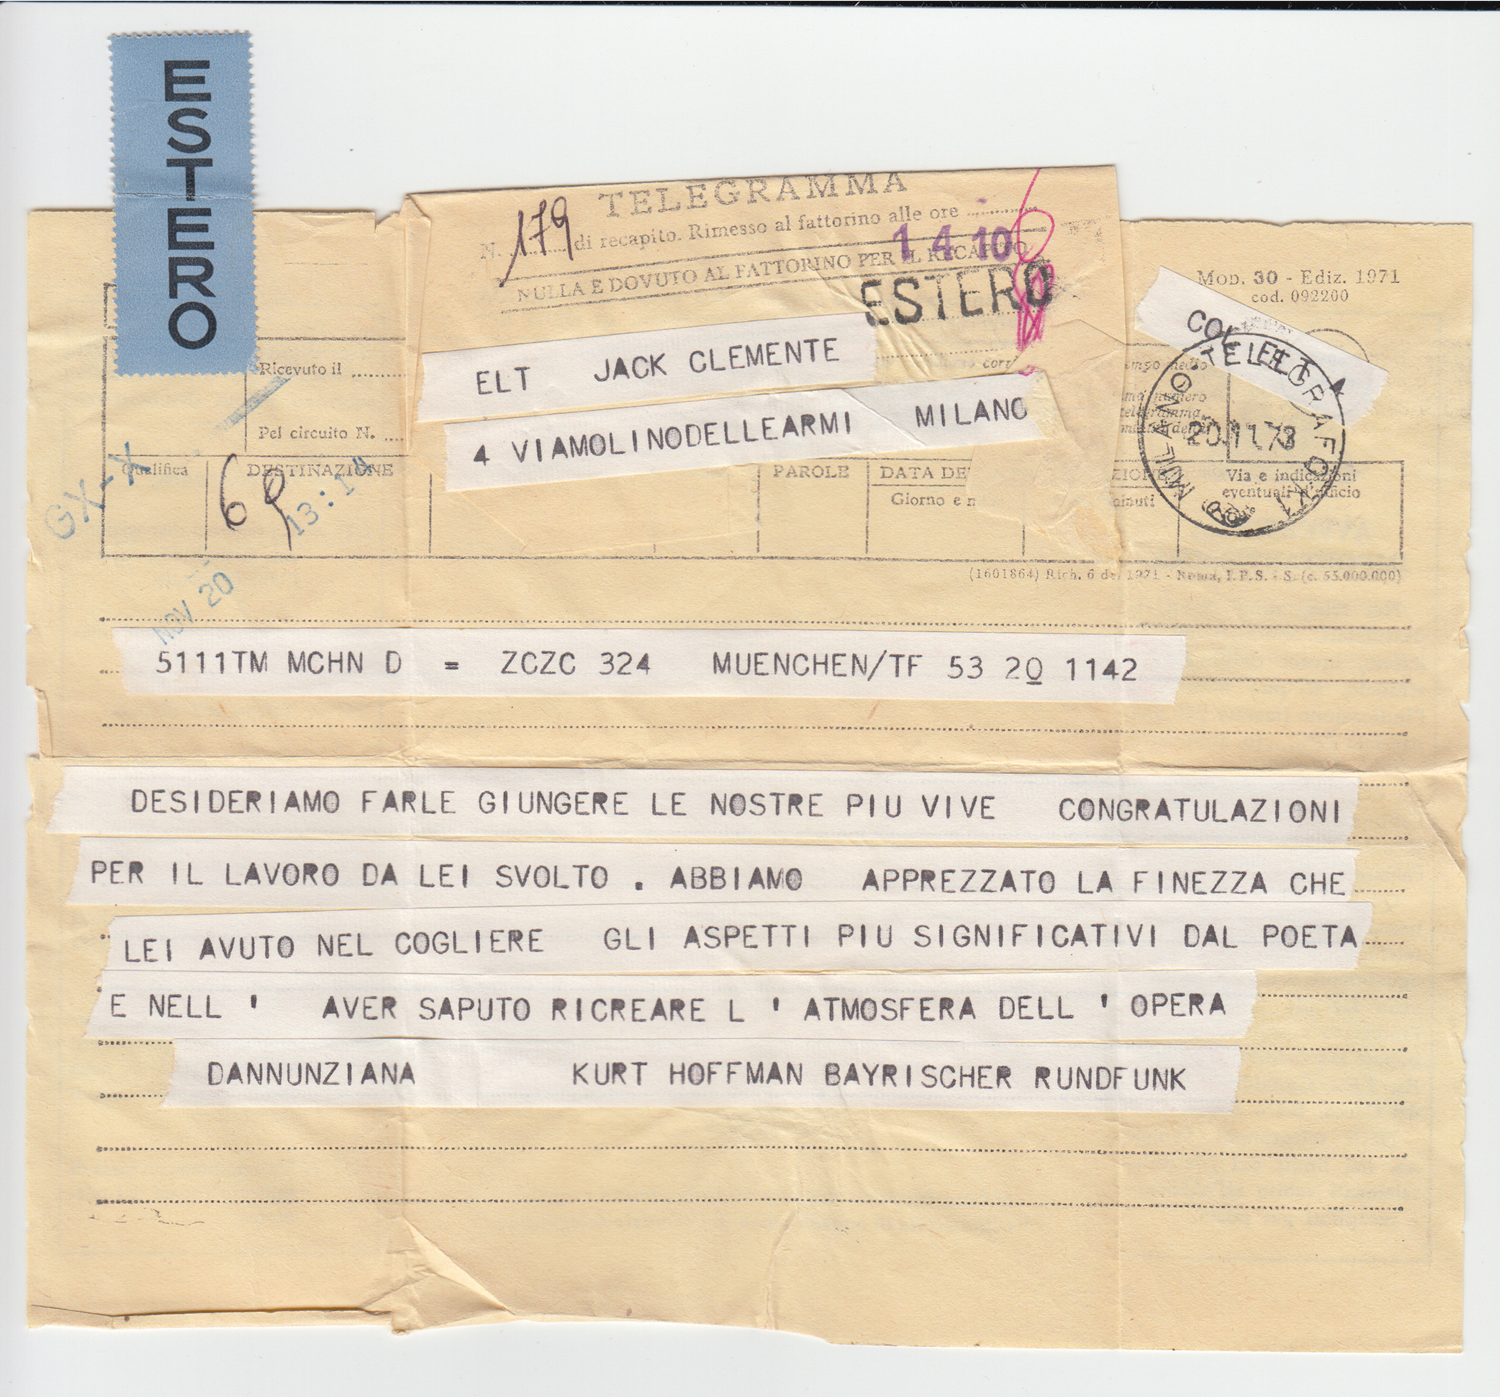 ESTERO
TELEGRAMMA
N. 179 di recapito. Rimesso al fattorino alle ore
14 10
NULLA E DOVUTO AL FATTORINO PER IL RECAPITO
ESTERO
Mod. 30 - Ediz. 1971
cod. 092200
ELT JACK CLEMENTE
4 VIAMOLINODELLEARMI MILANO
MILANO TELEGRAFO
20.11.73
Ricevuto il
Pel circuito N.
Qualifica
DESTINAZIONE
PAROLE
Giorno e
Via e indicazioni
eventuali d'ufficio
69
GX-X
13:14
NOV 20
(1601864) Rich. 6 del 1971 - Roma, I.P.S. - S. (c. 55.000.000)
5111TM MCHN D = ZCZC 324 MUENCHEN/TF 53 20 1142
DESIDERIAMO FARLE GIUNGERE LE NOSTRE PIU VIVE CONGRATULAZIONI
PER IL LAVORO DA LEI SVOLTO . ABBIAMO APPREZZATO LA FINEZZA CHE
LEI AVUTO NEL COGLIERE GLI ASPETTI PIU SIGNIFICATIVI DAL POETA
E NELL ' AVER SAPUTO RICREARE L ' ATMOSFERA DELL ' OPERA
DANNUNZIANA KURT HOFFMAN BAYRISCHER RUNDFUNK